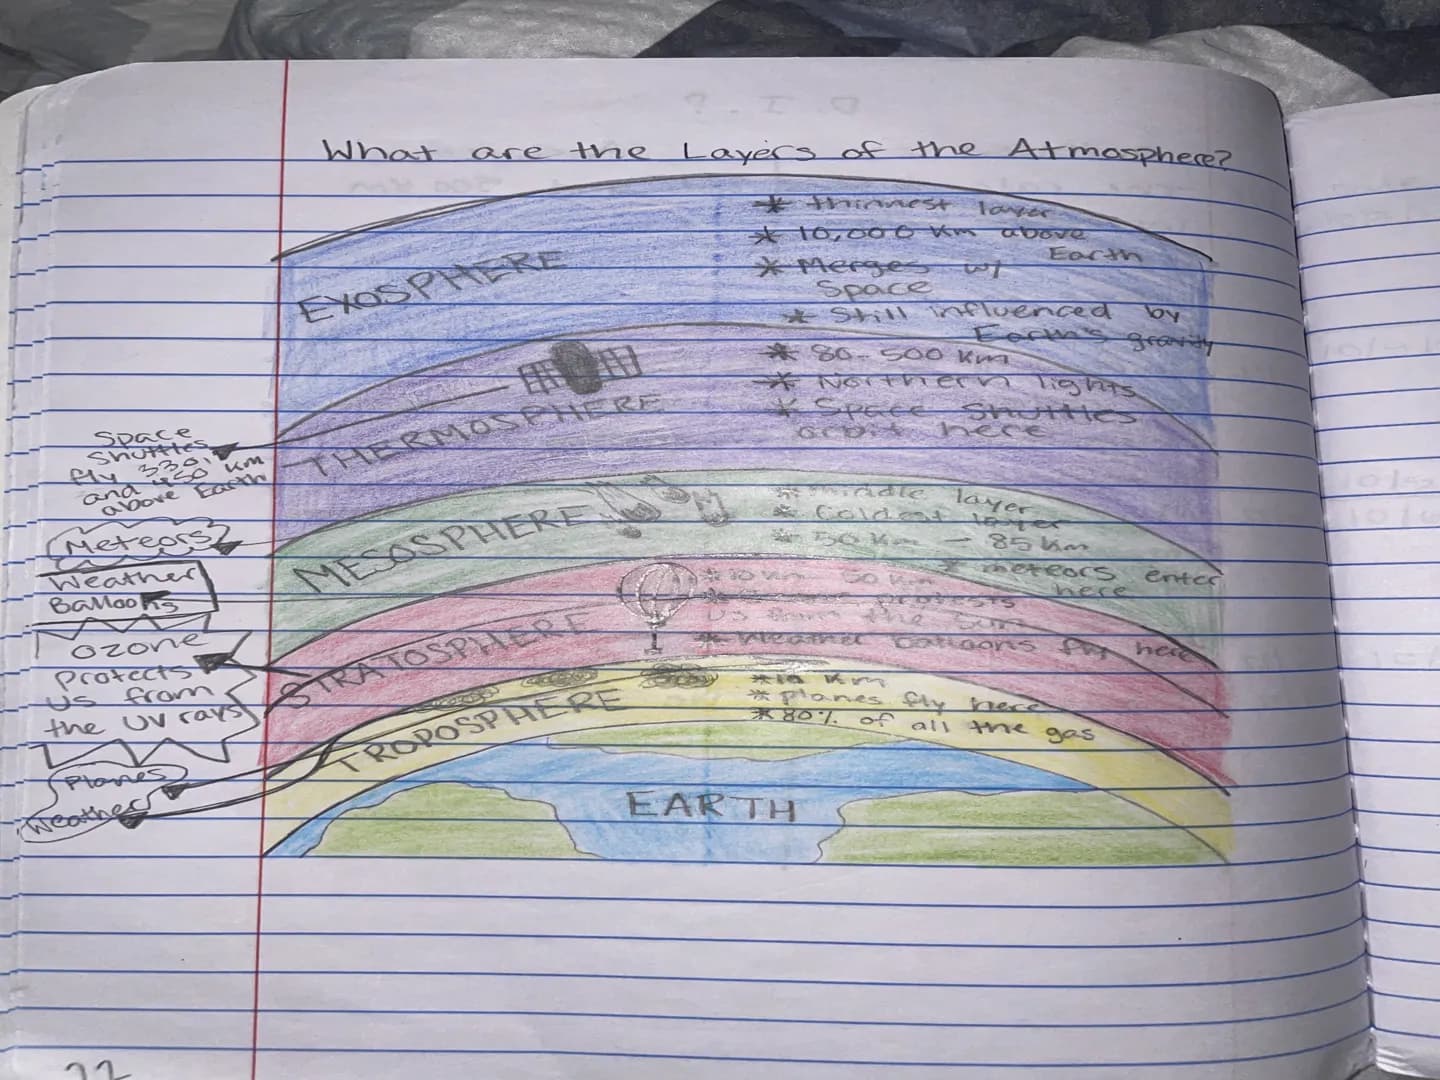 What are the Layers of the Atmosphere?
EXOSPHERE
* thinnest layer
* 10,000 km above
Earth
* Merges w/
Space
* Still influenced by
Earth's gravity
THERMOSPHERE
* 80-500 km
* Northern lights
* Space Shuttles
orbit here
Space
Shuttles
fly 330
and 450 km
above Earth
MESOSPHERE
* middle layer
* Coldest layer
* 50 km - 85 km
* meteors enter
here
Meteors
STRATOSPHERE
* 10 km 50 km
protests
us from the sun
* Weather balloons fly here
Weather
Balloons
Ozone
Protects
us from
the UV rays
TROPOSPHERE
* 10 km
* planes fly here
* 80% of all the gas
Planes
Weather
EARTH
22